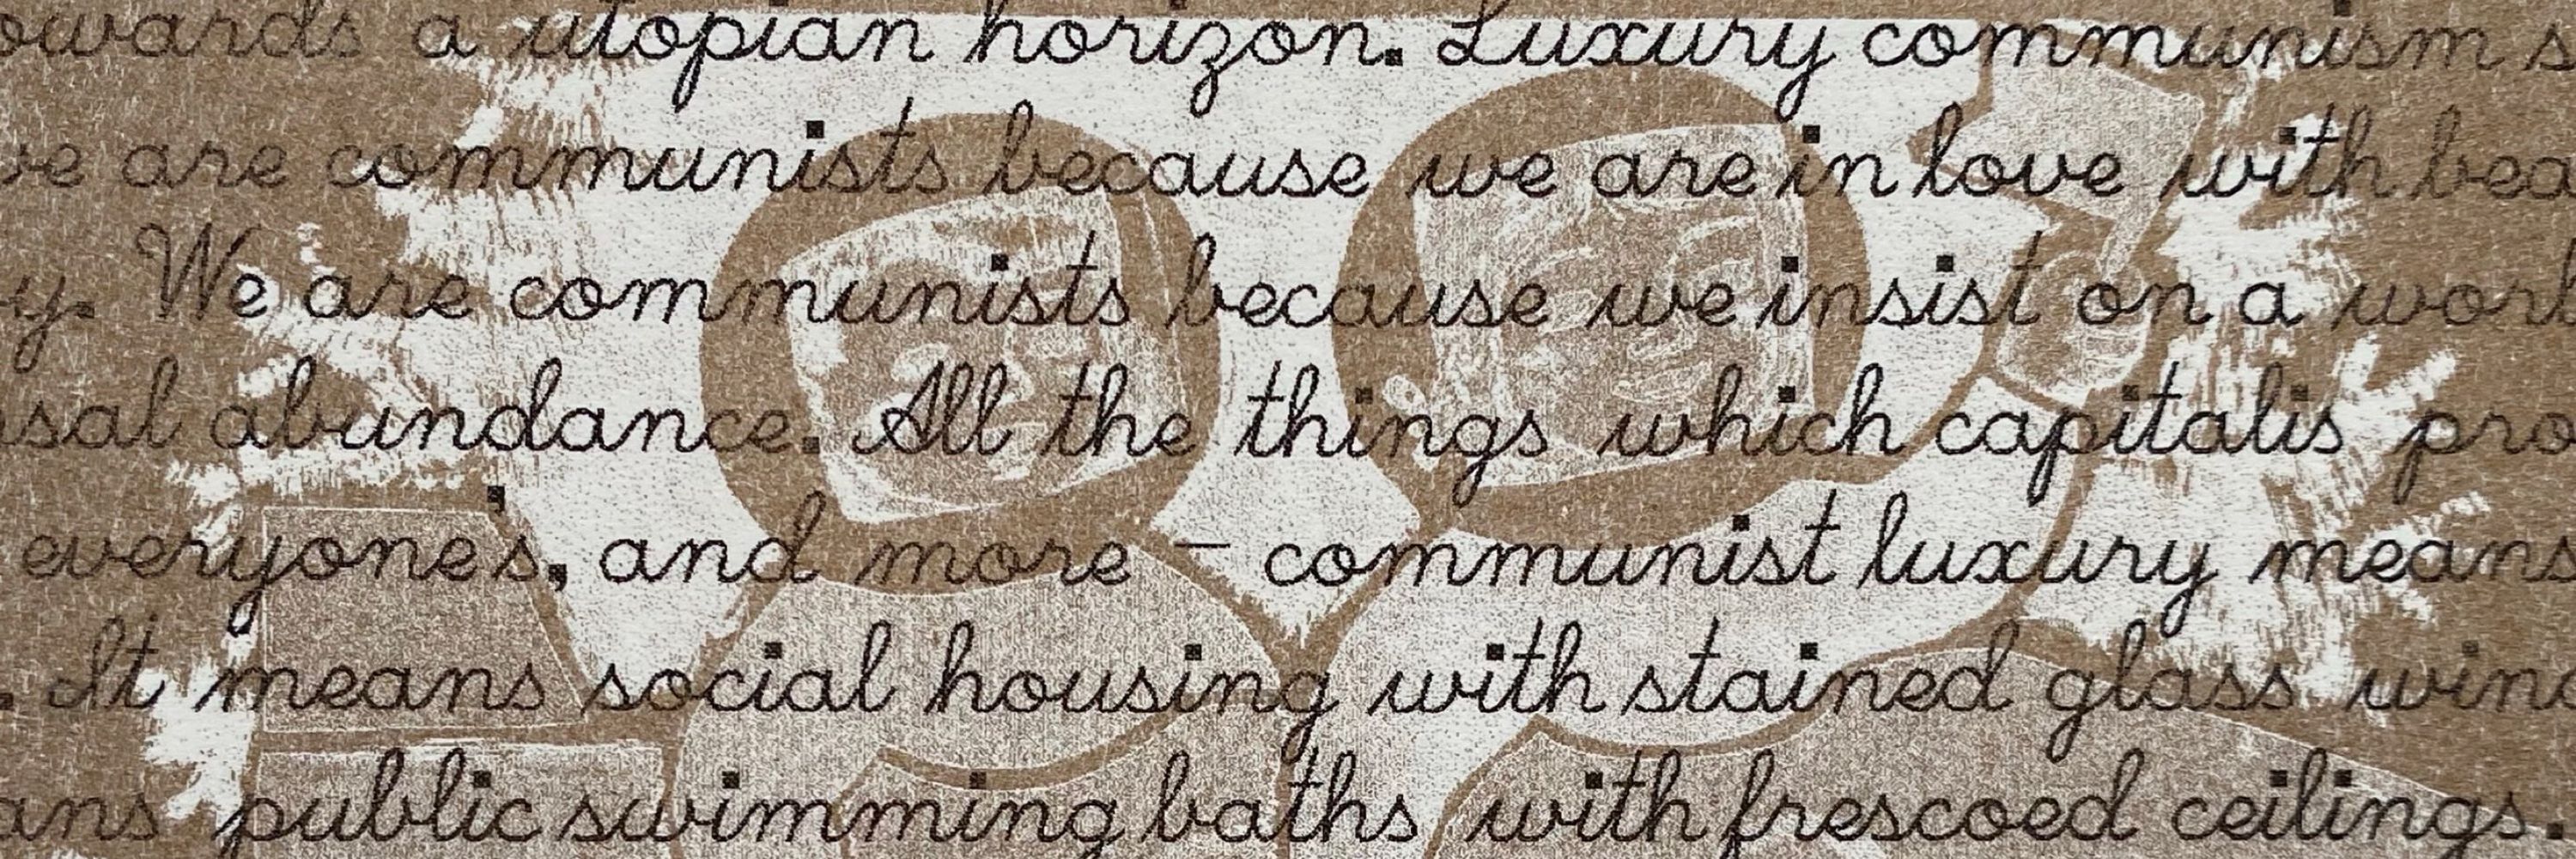 owards a utopian horizon. Luxury communism s
ve are communists because we are in love with bea
y. We are communists because we insist on a worl
sal abundance. All the things which capitalis pro
everyone's, and more – communist luxury means
. It means social housing with stained glass wind
ans public swimming baths with frescoed ceilings.